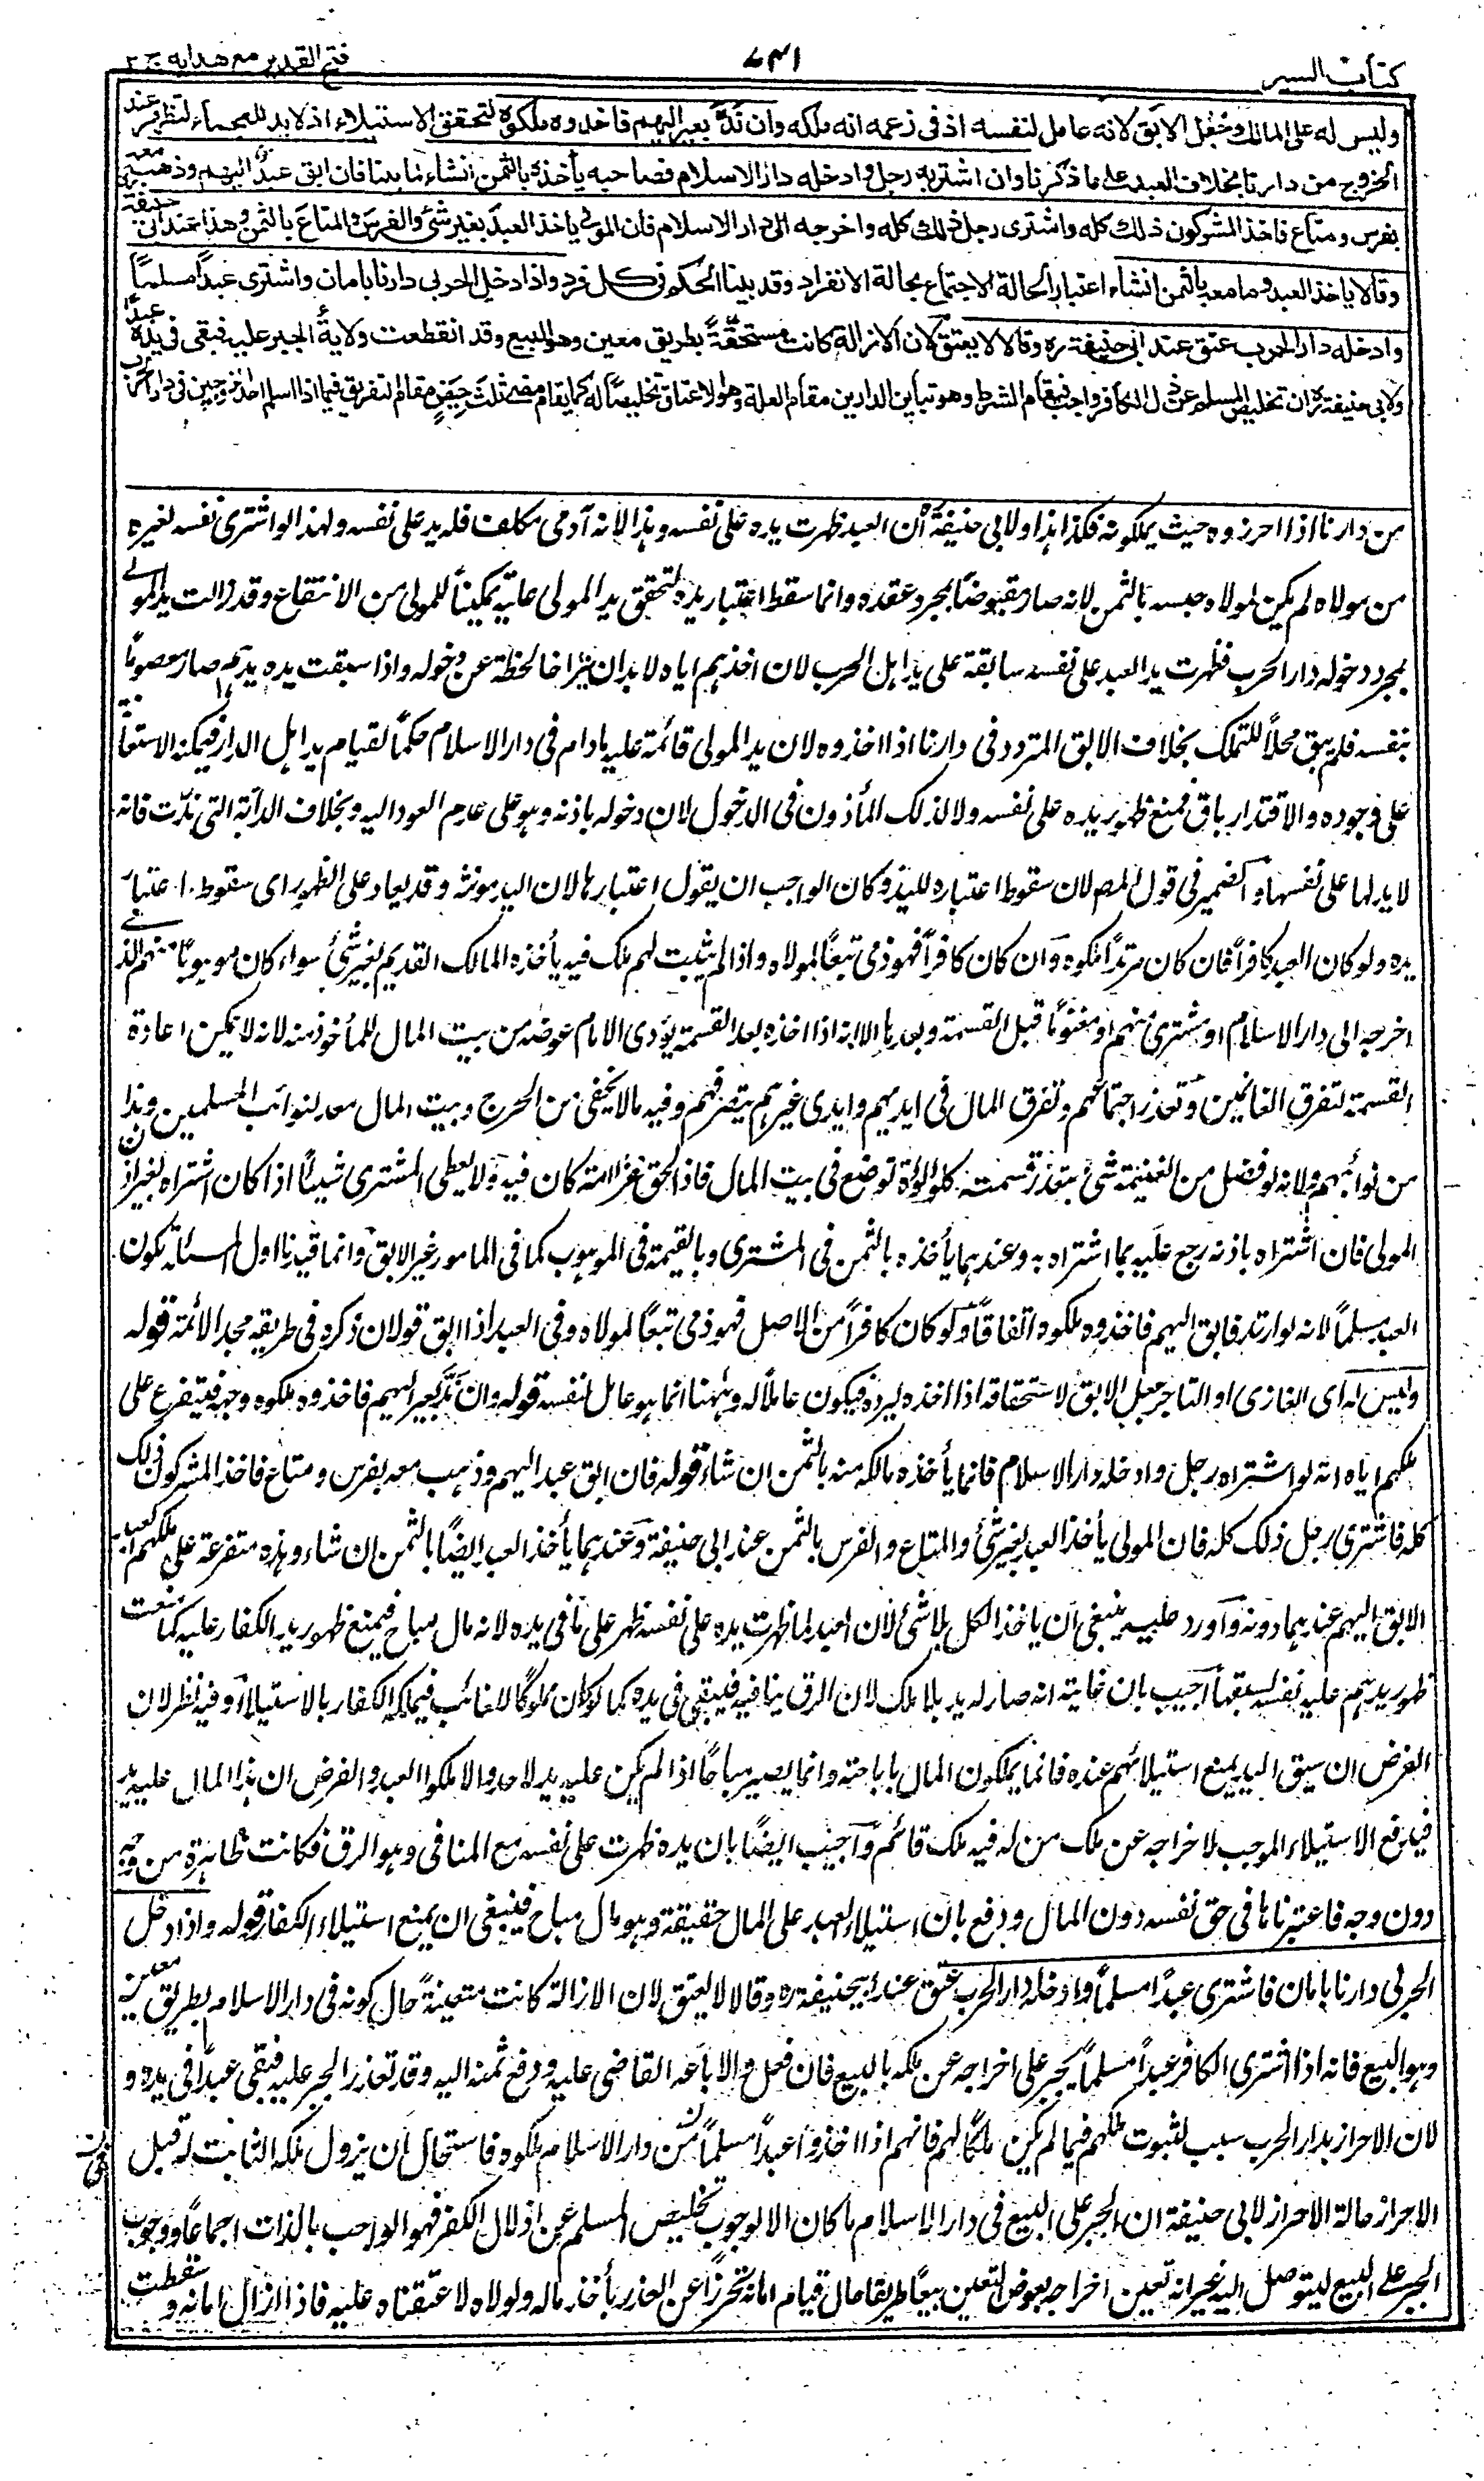 كتاب السير
٧٣١
فتح القدير مع هدايه ج ٢
وليس له على المالك جعل الآبق لانه عامل لنفسه اذ فى زعمه انه ملكه وان ندّ بعير اليهم فاخذوه ملكوه لتحقق الاستيلاء اذ لا يد للعجماء لتظهر عند
الخروج من دارنا بخلاف العبد على ما ذكرنا وان اشتريه رجل وادخله دار الاسلام فصاحبه يأخذه بالثمن انشاء لما بينا فان ابق عبد اليهم وذهب معه
بفرس ومتاع فاخذ المشركون ذلك كله واشترى رجل ذلك كله واخرجه الى دار الاسلام فان المولى ياخذ العبد بغير شئ والفرس والمتاع بالثمن وهذا عند ابى حنيفة
وقالا ياخذ العبد وما معه بالثمن انشاء اعتبارا لحالة الاجتماع بحالة الانفراد وقد بينا الحكم فى كل فرد واذا دخل الحربى دارنا بامان واشترى عبدا مسلما
وادخله دار الحرب عتق عند ابى حنيفة ره وقالا لا يعتق لان الازالة كانت مستحقة بطريق معين وهو البيع وقد انقطعت ولاية الجبر عليه فبقى فى يده عبدا
ولابى حنيفة ره ان تخليص المسلم عن ذل الكافر واجب فيقام الشرط وهو تباين الدارين مقام العلة وهو الاعتاق تخليصا له كما يقام مضى ثلث حيض مقام التفريق فيما اذا اسلم احد الزوجين فى دار الحرب
من دارنا اذا احرزوه حيث يملكونه فكذا هذا ولابى حنيفة أن العبد ظهرت يده على نفسه وهذا لانه آدمى مكلف فله يد على نفسه ولهذا لو اشترى نفسه لغيره
من مولاه لم يكن لمولاه حبسه بالثمن لانه صار مقبوضا بمجرد عقده وانما سقط اعتبار يده لتحقق يد المولى عليه تمكينا للمولى من الانتفاع وقد زالت يد المولى
بمجرد دخوله دار الحرب فظهرت يد العبد على نفسه سابقة على يد اهل الحرب لان اخذهم اياه لا بد ان يتراخا لحظة عن دخوله واذا سبقت يده يدهم صار معصوما
بنفسه فلم يبق محلا للتملك بخلاف الابق المتردد فى دارنا اذا اخذوه لان يد المولى قائمة عليه مادام فى دار الاسلام حكما لقيام يد اهل الدار فيمكنه الاستعانة بها
على وجوده والاقتدار باق فمنع ظهور يده على نفسه ولا لذلك المأذون فى الدخول لان دخوله باذنه وهو على عدم العود اليه وبخلاف الدابة التى ندّت فانه
لا يد لها على نفسها والضمير فى قول المص لان سقوط اعتباره لليد وكان الواجب ان يقول اعتبارها لان اليد مونثة وقد يعاد على الظهور اى سقوط اعتبار
يده ولو كان العبد كافرا فان كان مرتدا ملكوه وان كان كافرا فهو ذمى تبعا لمولاه واذا لم يثبت لهم ملك فيه يأخذه المالك القديم بغير شئ سواء كان موهوبا منهم للذى
اخرجه الى دار الاسلام او مشترى منهم او مغنوما قبل القسمة وبعدها الا انه اذا اخذه بعد القسمة يؤدى الامام عوضه من بيت المال للمأخوذ منه لانه لا يمكن اعادة
القسمة لتفرق الغانمين وتعذر اجتماعهم وتفرق المال فى ايديهم وايدى غيرهم بتصرفهم وفيه مالا يخفى من الحرج وبيت المال معد لنوائب المسلمين وهذا
من نوائبهم ولانه لو فضل من الغنيمة شئ يتعذر قسمته كلؤلؤة توضع فى بيت المال فاذا لحق غرامة كان فيه ولا يعطى المشترى شيئا اذا كان اشتراه بغير اذن
المولى فان اشتراه باذنه رجع عليه بما اشتراه به وعندهما يأخذه بالثمن فى المشترى وبالقيمة فى الموهوب كما فى المامور غير الابق وانما قيدنا اول المسئلة بكون
العبد مسلما لانه لو ارتد فابق اليهم فاخذوه ملكوه اتفاقا ولو كان كافرا من الاصل فهو ذمى تبعا لمولاه وفى العبد اذا ابق قولان ذكره فى طريقه مجد الائمة قوله
وليس له اى الغازى او التاجر جعل الابق لاستحقاقه اذا اخذه ليرده فيكون عاملا له وههنا انما هو عامل لنفسه قوله وان ندّ بعير اليهم فاخذوه ملكوه وجهه فيتفرع على
ملكهم اياه انه لو اشتراه رجل وادخله دار الاسلام فانما يأخذه مالكه منه بالثمن ان شاء قوله فان ابق عبد اليهم وذهب معه بفرس ومتاع فاخذ المشركون ذلك
كله فاشترى رجل ذلك كله فان المولى يأخذ العبد بغير شئ والمتاع والفرس بالثمن عند ابى حنيفة وعندهما يأخذ العبد ايضا بالثمن ان شاء وهذه متفرعة على ملكهم العبد
الابق اليهم عندهما دونه وآورد عليه ينبغى ان ياخذ الكل بلا شئ لان العبد لما ظهرت يده على نفسه ظهر على ما فى يده لانه مال مباح فيمنع ظهور يد الكفار عليه كما منعت
ظهور يدهم على نفسه لسبقها آجيب بان غايته انه صار له يد بلا ملك لان الرق ينافيه فيبقى فى يده كما لو كان مملوكا للغائب فيملكه الكفار بالاستيلاء وفيه نظر لان
الفرض ان سبق اليد يمنع استيلائهم عنده فانما يملكون المال باباحته وانما يصير مباحا اذا لم يكن عليه يد لاحد والا ملكوا العبد والفرض ان هذا المال عليه يد
فيدفع الاستيلاء الموجب لاخراجه عن ملك من له فيه ملك قائم وآجيب ايضا بان يده ظهرت على نفسه مع المنافى وهو الرق فكانت ظاهرة من وجه
دون وجه فاعتبرناها فى حق نفسه دون المال ودفع بان استيلاء العبد على المال حقيقة وهو مال مباح فينبغى ان يمنع استيلاء الكفار قوله واذا دخل
الحربى دارنا بامان فاشترى عبدا مسلما وادخله دار الحرب عتق عند ابيحنيفة ره وقالا لا يعتق لان الازالة كانت متعينة حال كونه فى دار الاسلام بطريق معين
وهو البيع فانه اذا اشترى الكافر عبدا مسلما يجبر على اخراجه عن ملكه بالبيع فان فعل والا باعه القاضى عليه ودفع ثمنه اليه وقد تعذر الجبر عليه فبقى عبدا فى يده و
لان الاحراز بدار الحرب سبب لثبوت ملكهم فيما لم يكن ملكا لهم فانهم اذا اخذوا عبدا مسلما من دار الاسلام ملكوه فاستحال ان يزول ملكه الثابت له قبل
الاحراز حالة الاحراز لابى حنيفة ان الجبر على البيع فى دار الاسلام ما كان الا لوجوب تخليص المسلم عن اذلال الكفر فهو الواجب بالذات اجماعا ووجوب
الجبر على البيع ليتوصل اليه غير انه تعين اخراجه بعوض لتعين بيعا طريقا حال قيام امانه تحرزا عن الغدر بأخذ ماله ولولاه لاعتقناه عليه فاذا زال امانه وسقطت